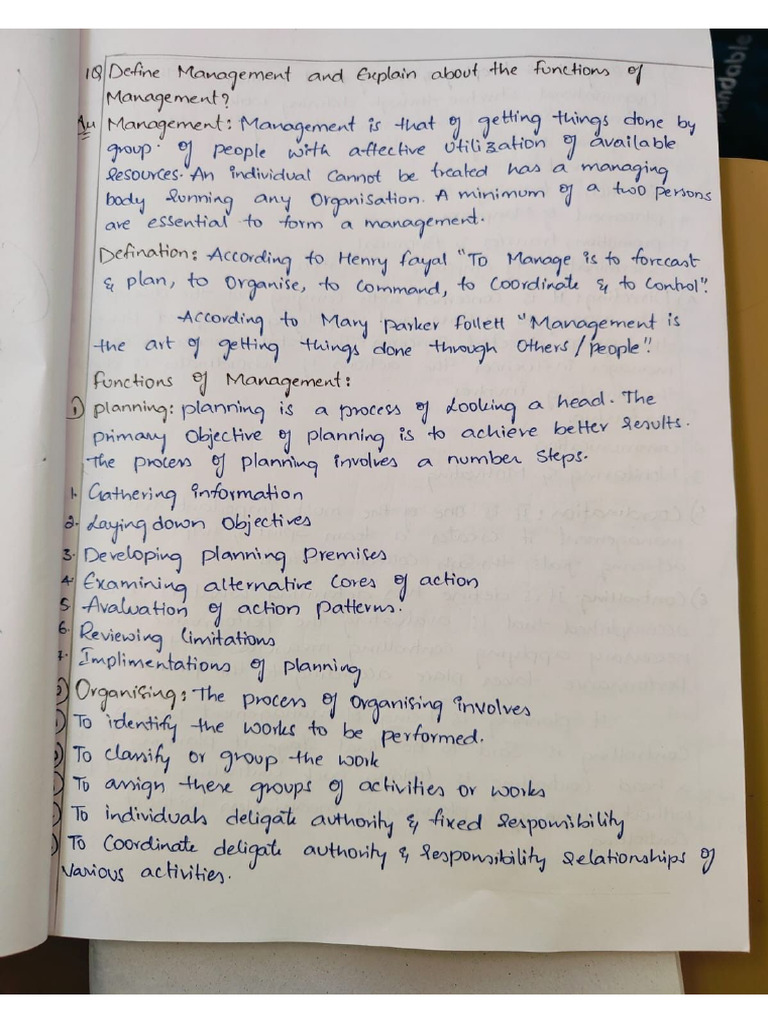 1Q Define Management and Explain about the functions of
Management?
Management: Management is that of getting things done by
group of people with affective utilization of available
resources. An individual cannot be treated has a managing
body running any organisation. A minimum of a two persons
are essential to form a management.
Defination: According to Henry fayal "To Manage is to forecast
& plan, to organise, to command, to coordinate & to control".
According to Mary parker follett "Management is
the art of getting things done through others/people".
functions of Management:
① planning: planning is a process of looking a head. The
primary objective of planning is to achieve better results.
The process of planning involves a number steps.
1. Gathering information
2. Laying down objectives
3. Developing planning premises
4. Examining alternative cores of action
5. Avaluation of action patterns.
6. Reviewing limitations
7. Implimentations of planning
Organising: The process of organising involves
To identify the works to be performed.
To classify or group the work
To assign these groups of activities or works
To individuals deligate authority & fixed responsibility
To coordinate deligate authority & responsibility relationships of
various activities.